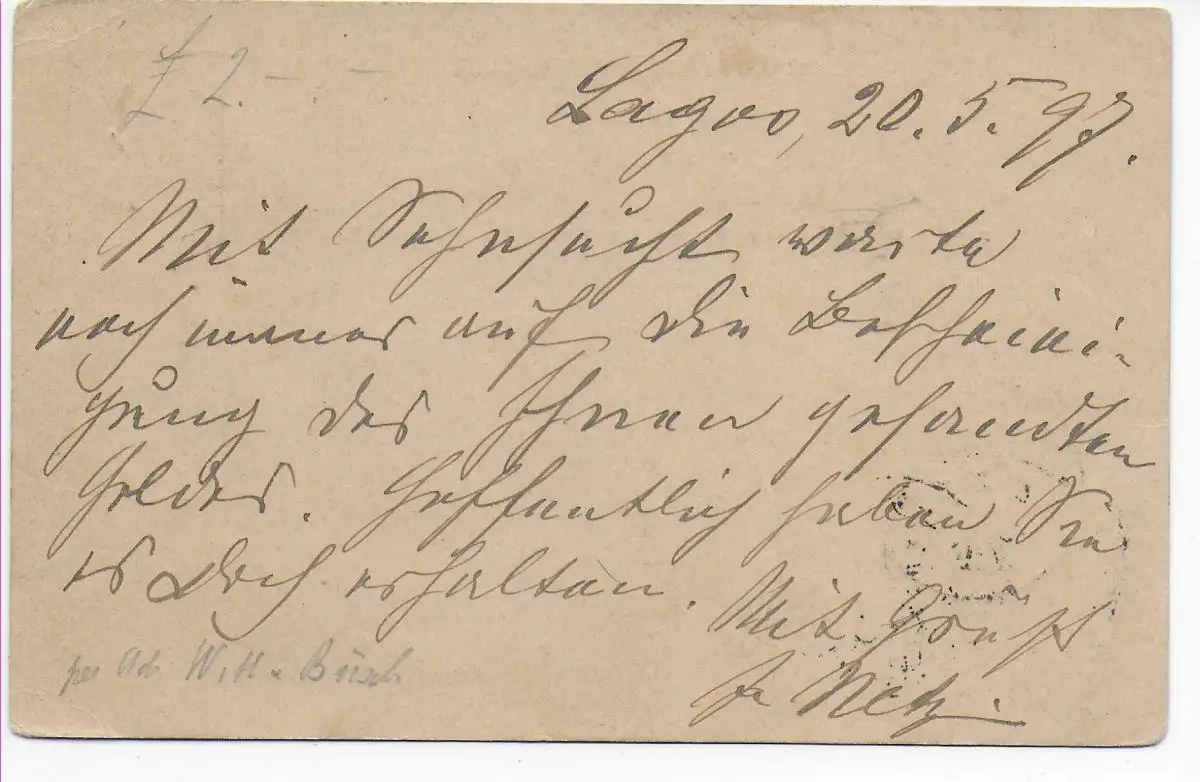 £ 2.-.-
Lagos, 20.5.97.
Mit Sehnsucht warte
noch immer auf die Bescheini-
gung des Ihnen gesandten
Geldes. Hoffentlich haben Sie
es doch erhalten.
Mit Gruß
Fr Netz
per Adr Witt & Büsch